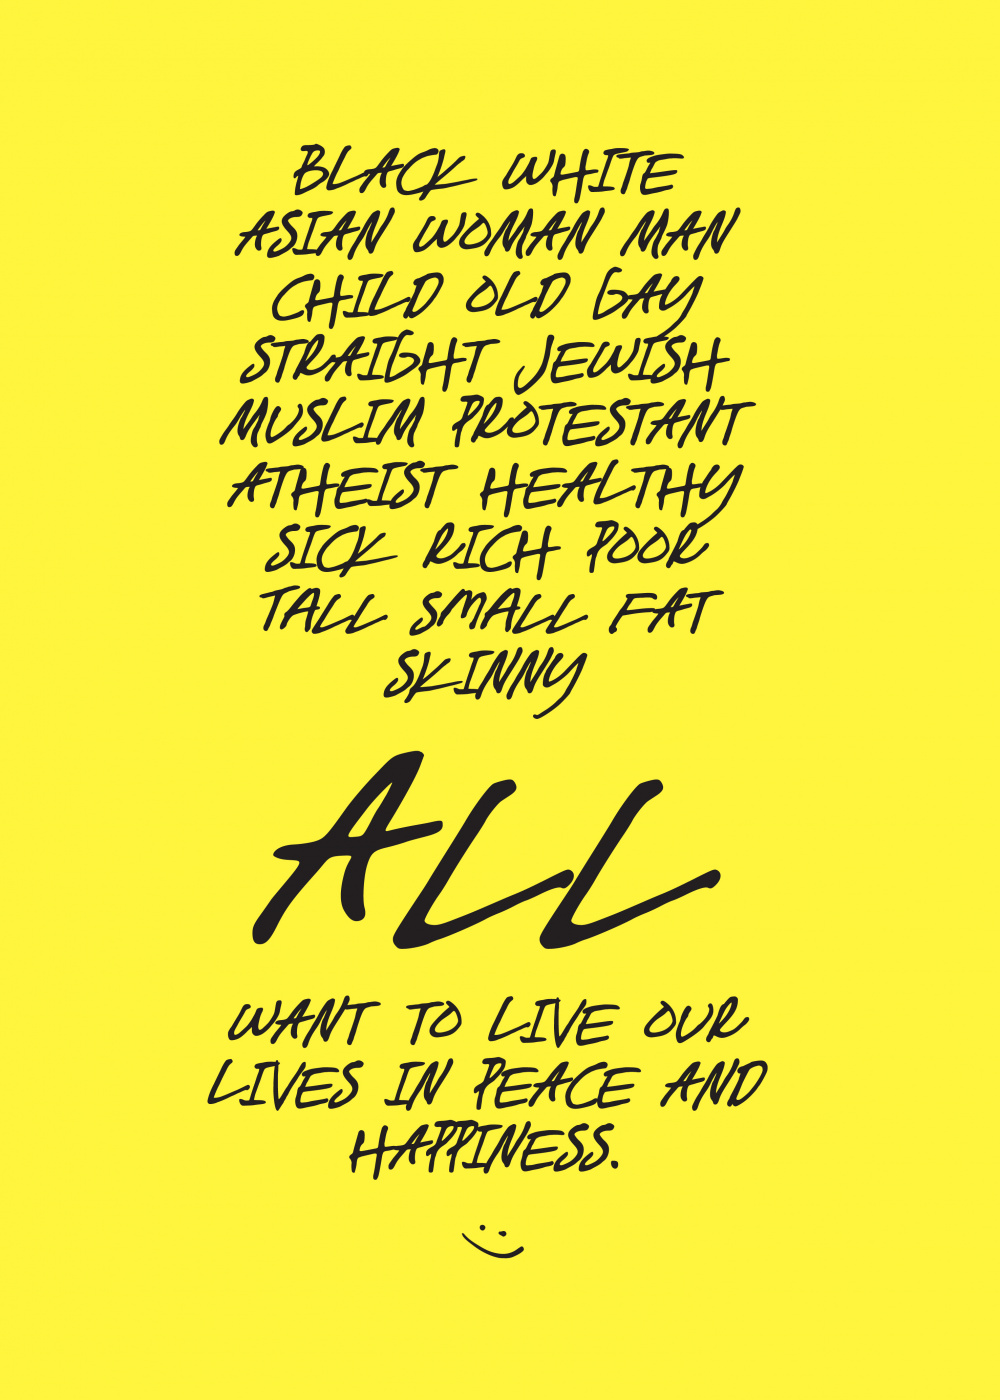 BLACK WHITE
ASIAN WOMAN MAN
CHILD OLD GAY
STRAIGHT JEWISH
MUSLIM PROTESTANT
ATHEIST HEALTHY
SICK RICH POOR
TALL SMALL FAT
SKINNY
ALL
WANT TO LIVE OUR
LIVES IN PEACE AND
HAPPINESS.